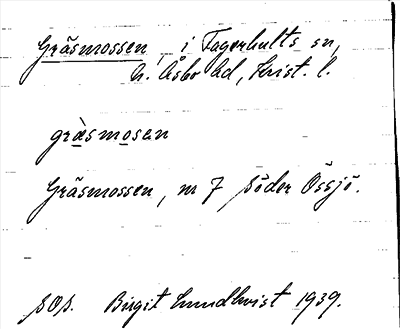 Gräsmossen, i Fagerhults sn,
N. Åsbo hd, Krist. l.
græsmosen
Gräsmossen, nr 7 Söder Össjö.
SOS. Birgit Lundkvist 1939.